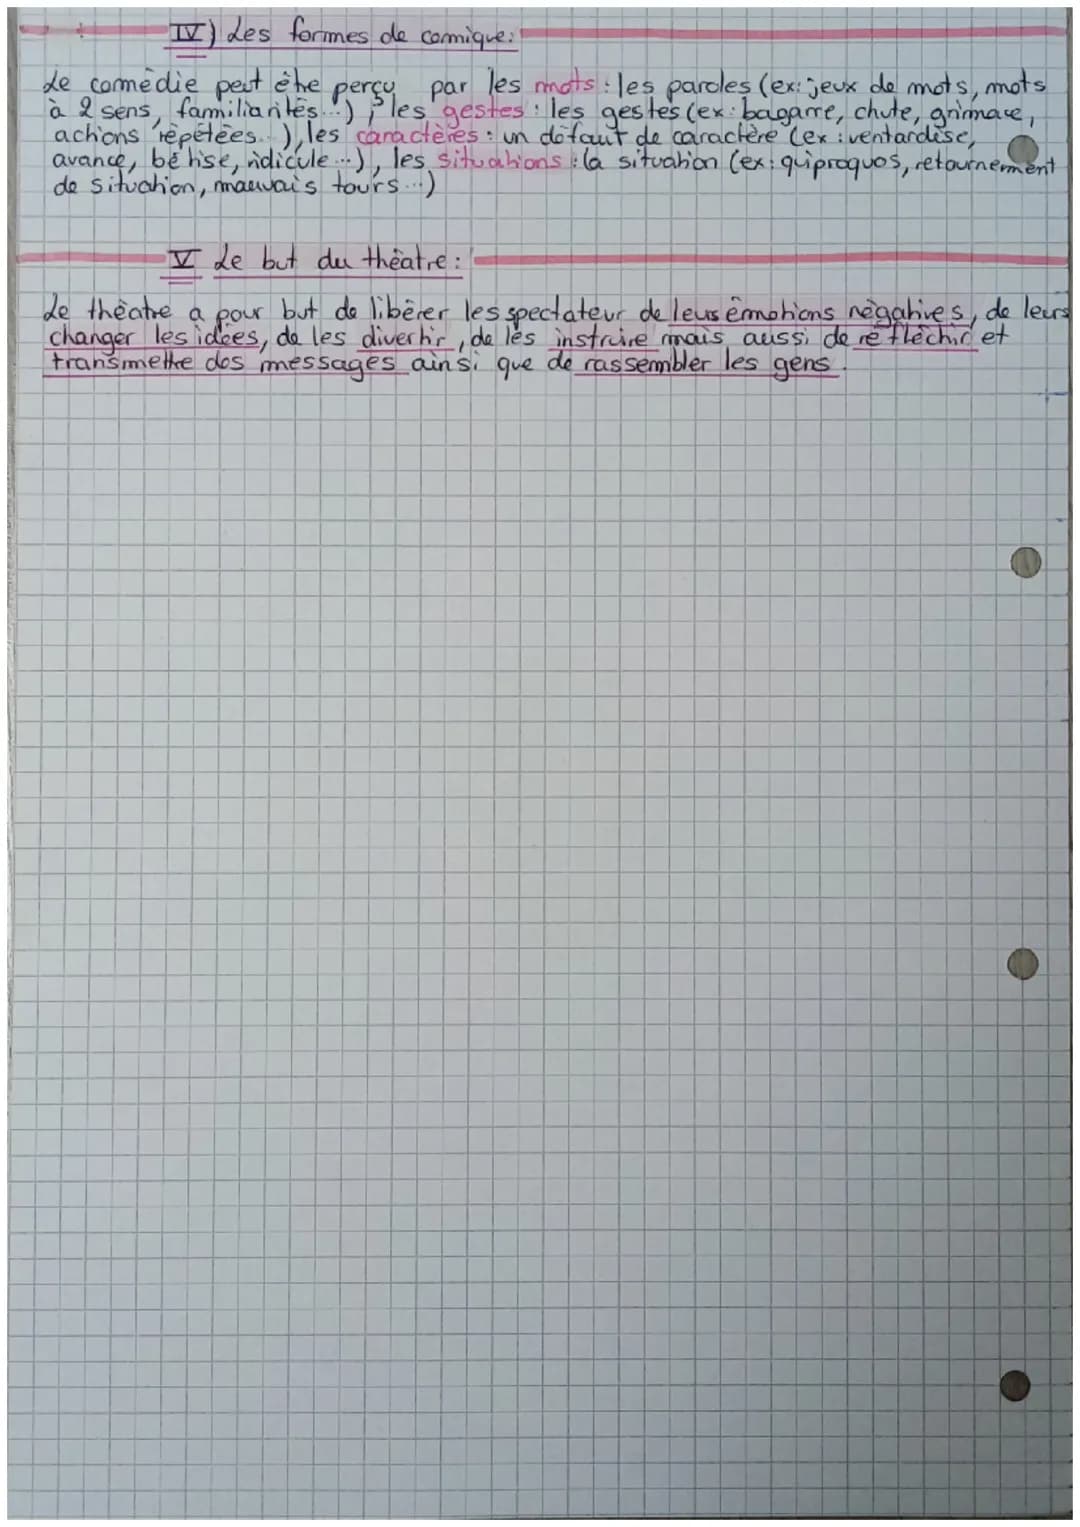 IV) Les formes de comique:
Le comédie peut être perçu par les mots : les paroles (ex: jeux de mots, mots
à 2 sens, familiarités...), les gestes : les gestes (ex: bagarre, chute, grimace,
actions répétées...), les caractères : un défaut de caractère (ex : ventardise,
avance, bêtise, ridicule...), les situations : la situation (ex: quiproquos, retournement
de situation, mauvais tours...)
V Le but du théatre :
Le théatre a pour but de libérer les spectateur de leurs émotions négatives, de leurs
changer les idées, de les divertir, de les instruire mais aussi de réfléchir et
transmettre des messages ainsi que de rassembler les gens.